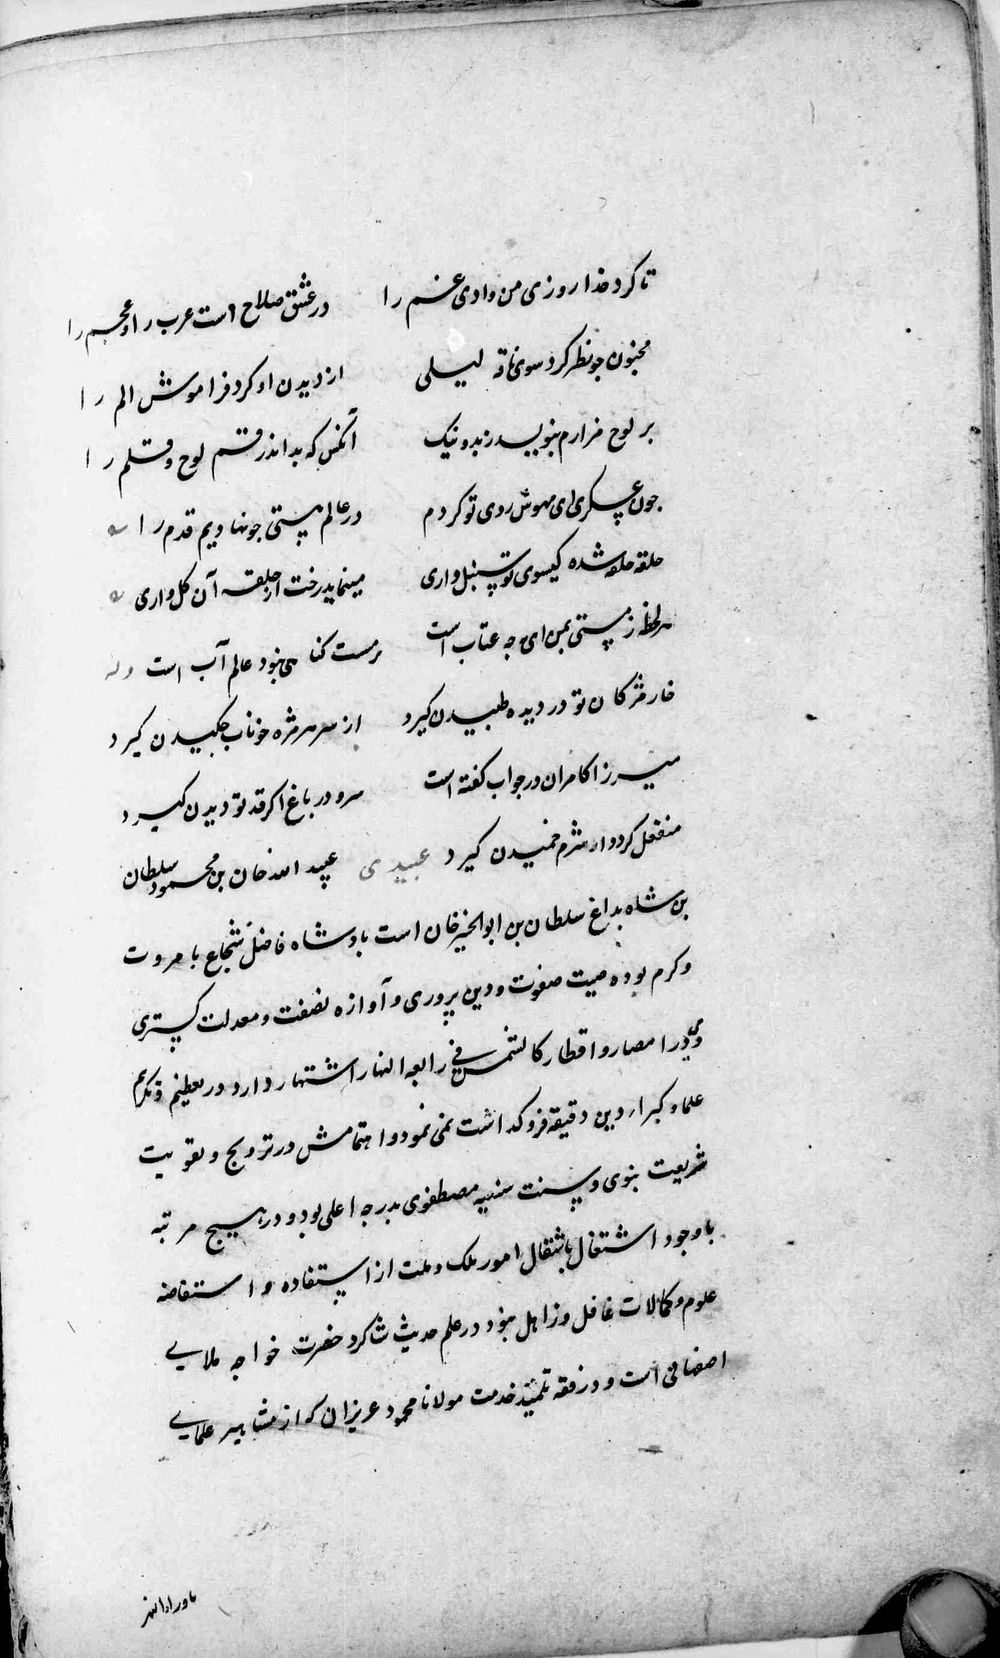 تا کرد خدا روزی من وادی غم را در عشق صلاح است عرب را و عجم را
مجنون جو نظر کرد سوی ناقه لیلی از دیدن او کرد فراموش الم را
بر لوح مزارم بنویسد ز بد و نیک آنکس که بداند رقم لوح و قلم را
جون عسکری ای مهوش روی تو کردم در عالم هستی جو نهادیم قدم را
حلقه حلقه شده کیسوی تو سنبل واری مینماید رخت از حلقه آن کل واری
هر لحظه ز مستی بمن ای جه عتاب است بر مست کناهی نبود عالم آب است وله
خار مژکان تو در دیده طلبیدن کیرد از سر هر مژه خوناب جکیدن کیرد
میرزا کامران در جواب کفته است سرو در باغ اکر قد تو دیدن کیرد
منفعل کردد و از شرم خمیدن کیرد عبیدی عبید الله خان بن محمود سلطان
بن شاه بداغ سلطان بن ابوالخیر خان است بادشاه فاضل شجاع با مروت
و کرم بوده صیت صفوت و دین پروری و آوازه نصفت و معدلت کستری
وی در امصار و اقطار کالشمس فی رابعه النهار اشتهار دارد در تعظیم و تکریم
علما و کبراء دین دقیقه فروکذاشت نمی نمود و اهتمامش در ترویج و تقویت
شریعت نبوی و سنت سنیه مصطفوی بدرجه اعلی بود و در هیچ مرتبه
با وجود اشتغال باشتغال امور ملک و ملت از استفاده و استفاضه
علوم و کمالات غافل و زاهل نبود در علم حدیث شاکرد حضرت خواجه ملایی
اصفهانی است و در فقه تلمیذ خدمت مولانا محمود عزیزان که از مشاهیر علمایی
ماوراءالنهر